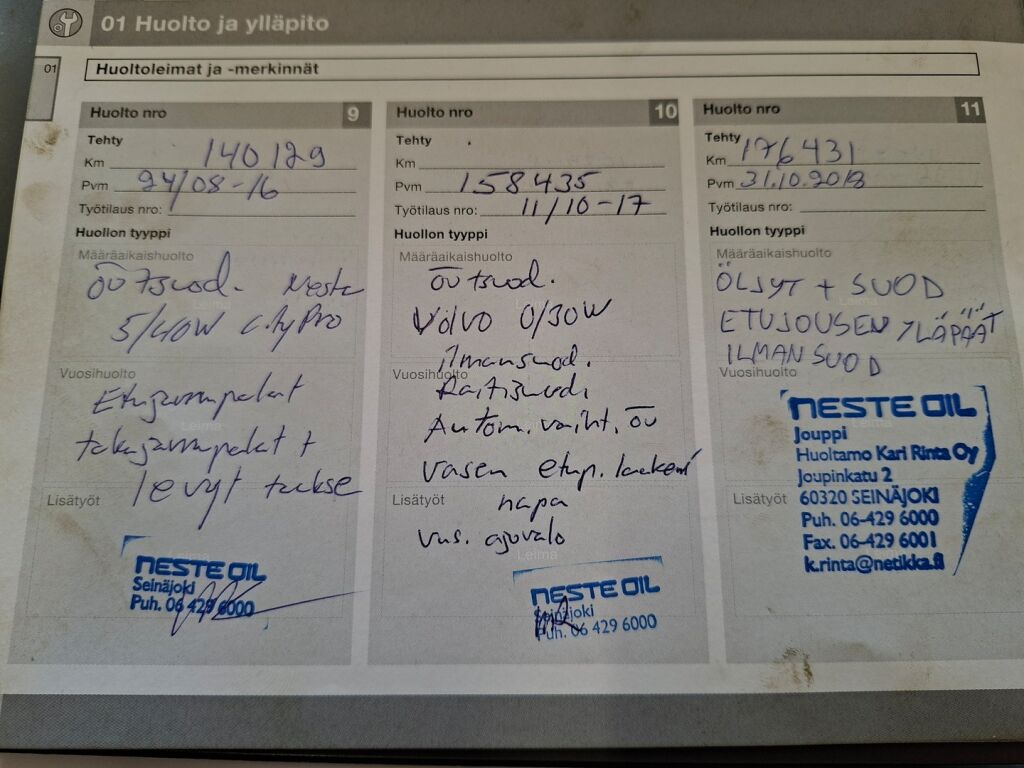 01 Huolto ja ylläpito
01
Huoltoleimat ja -merkinnät
Huolto nro 9
Tehty
Km 140 129
Pvm 24/08-16
Työtilaus nro:
Huollon tyyppi
Määräaikaishuolto
öv tsuod. Neste
5/40W CityPro
Leima
Vuosihuolto
Etujarrupalat
takajarrupalat +
Leima
levyt taakse
Lisätyöt
Leima
NESTE OIL
Seinäjoki
Puh. 06 429 6000
Huolto nro 10
Tehty
Km
Pvm 158435
Työtilaus nro: 11/10-17
Huollon tyyppi
Määräaikaishuolto
öv tsuod.
Leima
Volvo 0/30W
ilmansuod.
Vuosihuolto
Raitisuod.
Autom. vaiht. öv
Leima
vasen etup. laakeri
Lisätyöt
napa
vas. ajovalo
Leima
NESTE OIL
Seinäjoki
Puh. 06 429 6000
Huolto nro 11
Tehty
Km 176431
Pvm 31.10.2018
Työtilaus nro:
Huollon tyyppi
Määräaikaishuolto
ÖLJYT + SUOD
Leima
ETUJOUSEN YLÄPÄÄT
ILMANSUOD
Vuosihuolto
NESTE OIL
Jouppi
Huoltamo Kari Rinta Oy
Joupinkatu 2
Lisätyöt
60320 SEINÄJOKI
Puh. 06-429 6000
Fax. 06-429 6001
k.rinta@netikka.fi